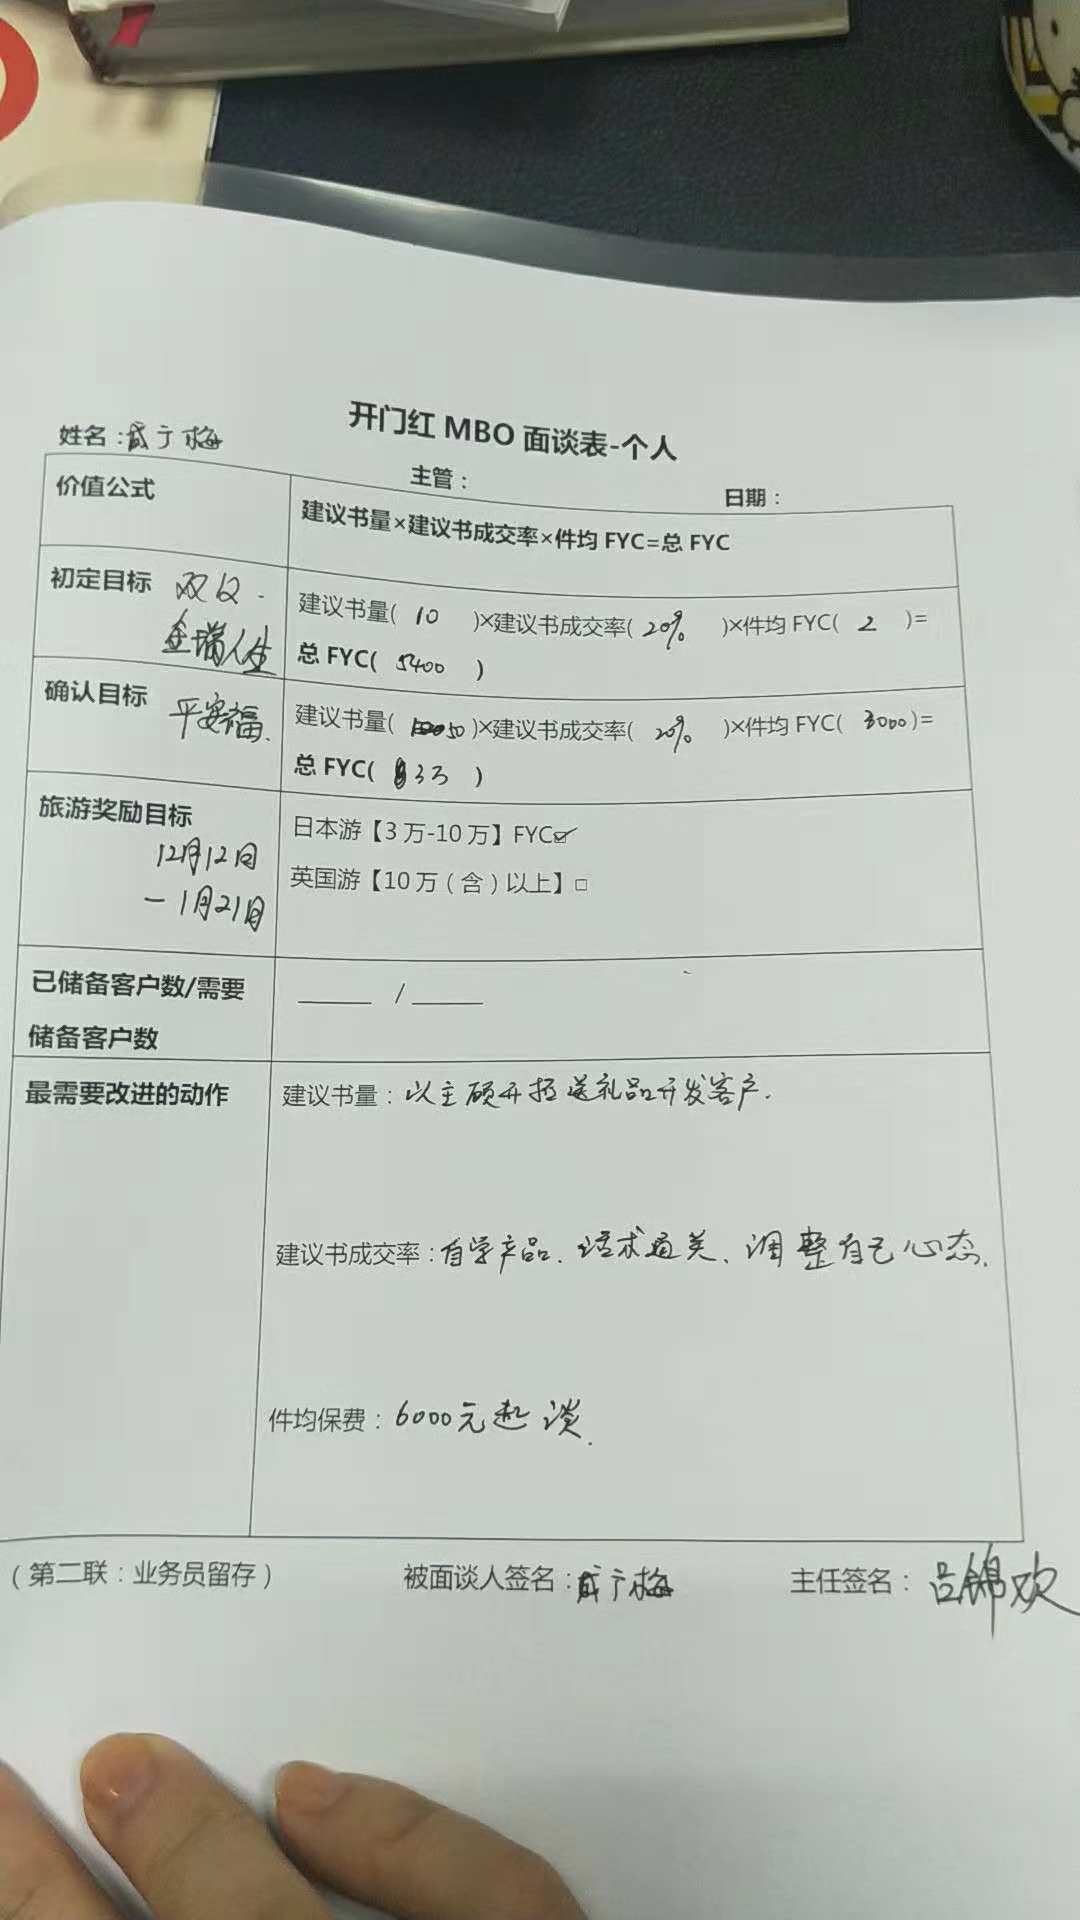 开门红 MBO 面谈表-个人
姓名：戚宁梅
主管：
日期：
价值公式
建议书量×建议书成交率×件均 FYC=总 FYC
初定目标 双12.
金瑞人生
建议书量( 10 )×建议书成交率( 20% )×件均 FYC( 2 )=
总 FYC( 5400 )
确认目标 平安福.
建议书量( 50 )×建议书成交率( 20% )×件均 FYC( 3000 )=
总 FYC( 3万 )
旅游奖励目标
12月12日
—1月21日
日本游【3 万-10 万】FYC☑
英国游【10 万（含）以上】□
已储备客户数/需要
储备客户数
_____ / _____
最需要改进的动作
建议书量：以主顾开拓送礼品开发客户.
建议书成交率：自学产品、话术通关、调整自己心态.
件均保费：6000元起谈.
（第二联：业务员留存）
被面谈人签名：戚宁梅
主任签名：吕锦欢